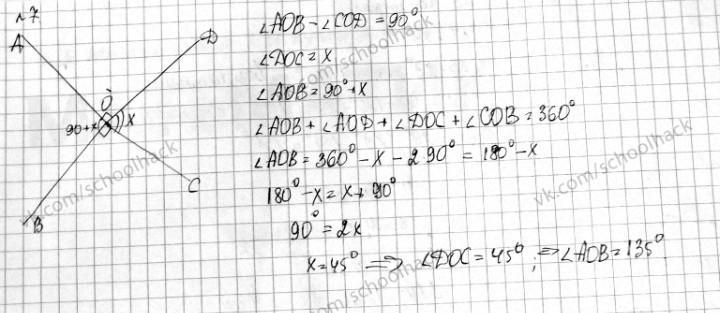 №7
∠AOB - ∠COD = 90°
∠DOC = x
∠AOB = 90° + x
∠AOB + ∠AOD + ∠DOC + ∠COB = 360°
∠AOB = 360° - x - 2·90° = 180° - x
180° - x = x + 90°
90° = 2x
x = 45° ⟹ ∠DOC = 45°; ⟹ ∠AOB = 135°
A
D
O
90+x
x
C
B
vk.com/schoolhack
vk.com/schoolhack
vk.com/schoolhack